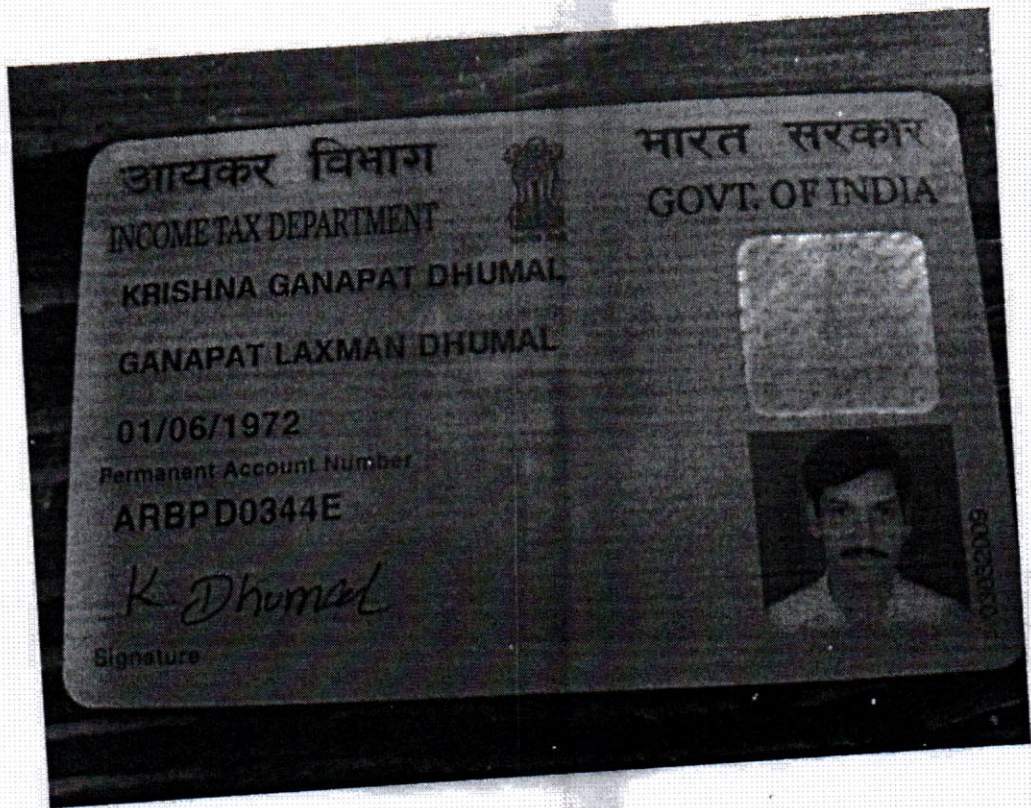 आयकर विभाग
INCOME TAX DEPARTMENT
भारत सरकार
GOVT. OF INDIA
KRISHNA GANAPAT DHUMAL
GANAPAT LAXMAN DHUMAL
01/06/1972
Permanent Account Number
ARBPD0344E
K Dhumal
Signature